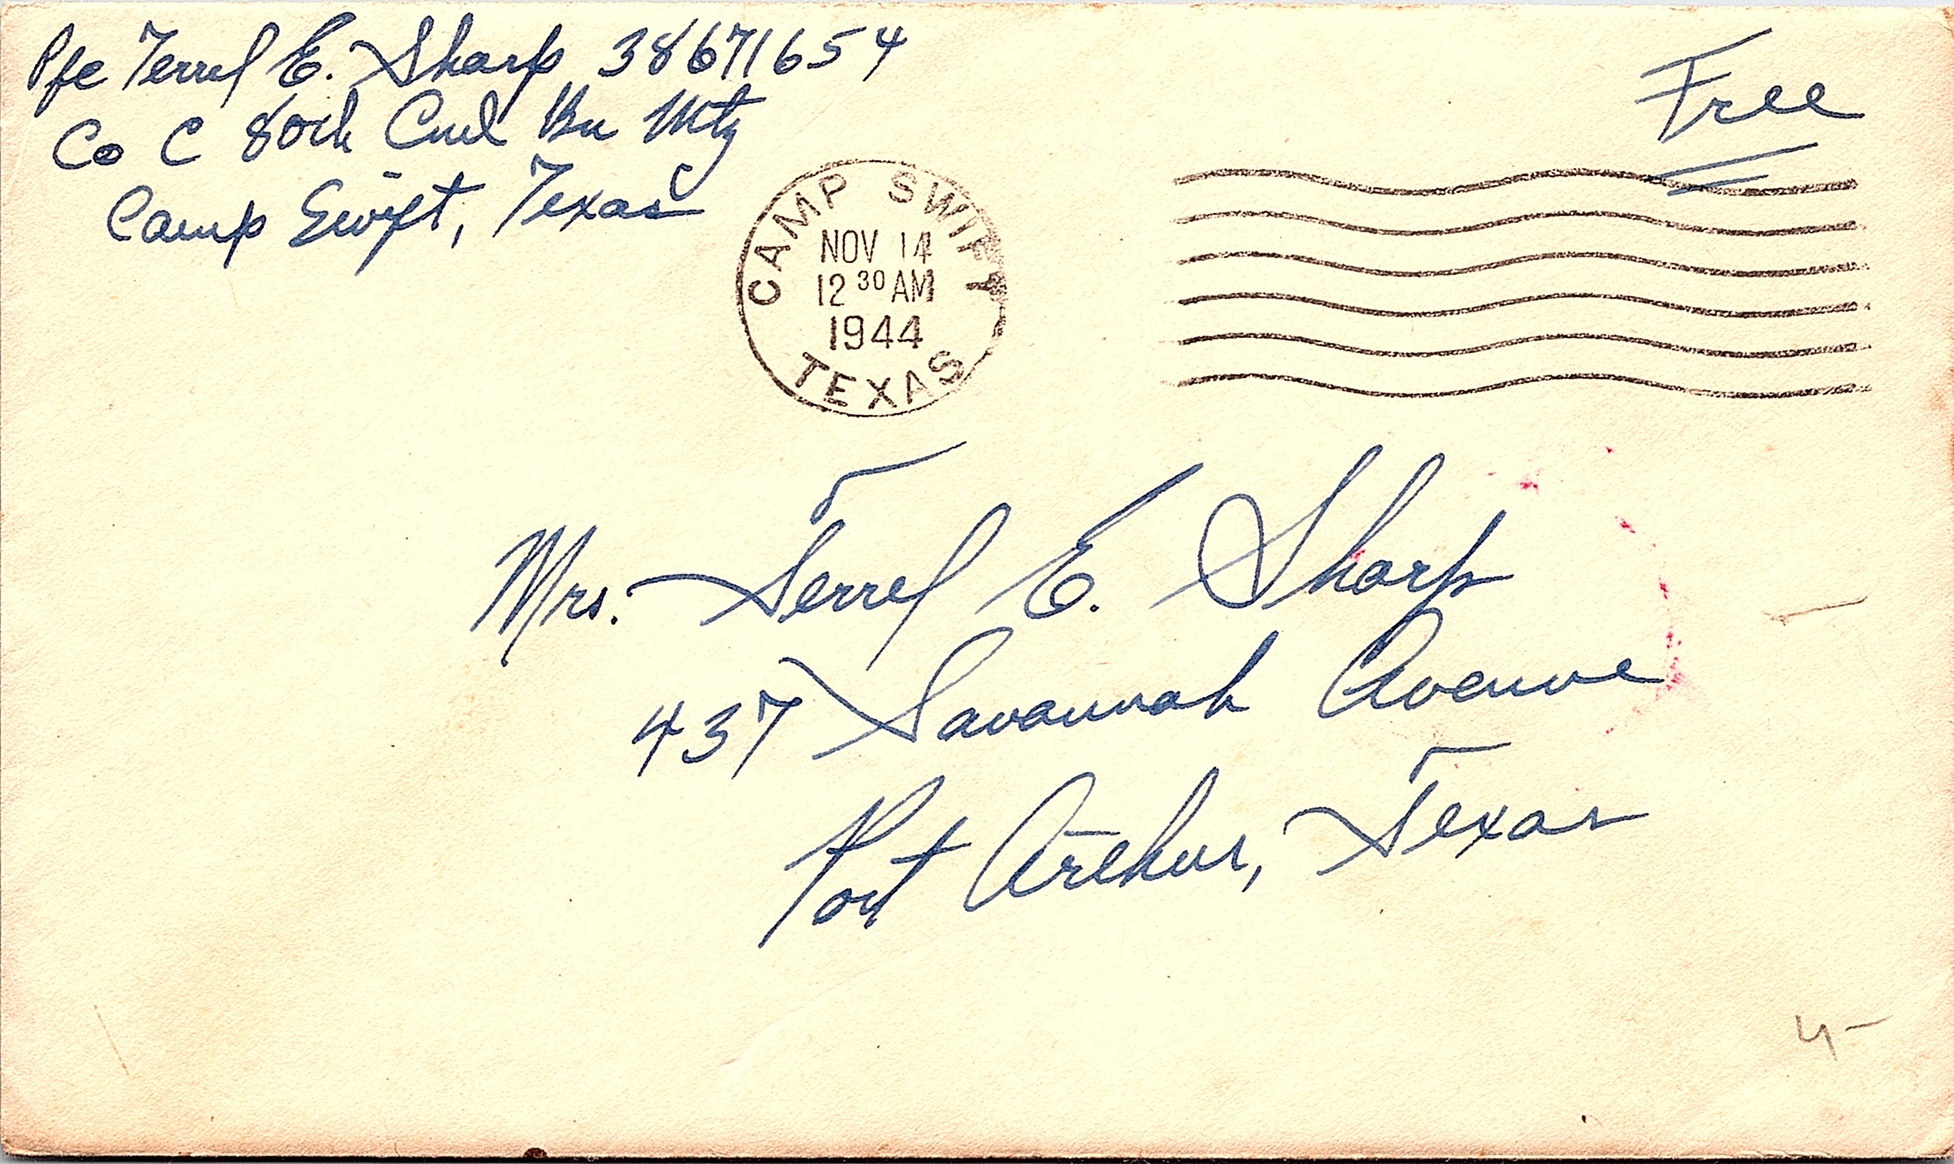 Pfc Terrel E. Sharp 38671654
Co C 80th Cml Bn Mtz
Camp Swift, Texas
Free
CAMP SWIFT
NOV 14
12 30 AM
1944
TEXAS
Mrs. Terrel E. Sharp
437 Savannah Avenue
Port Arthur, Texas